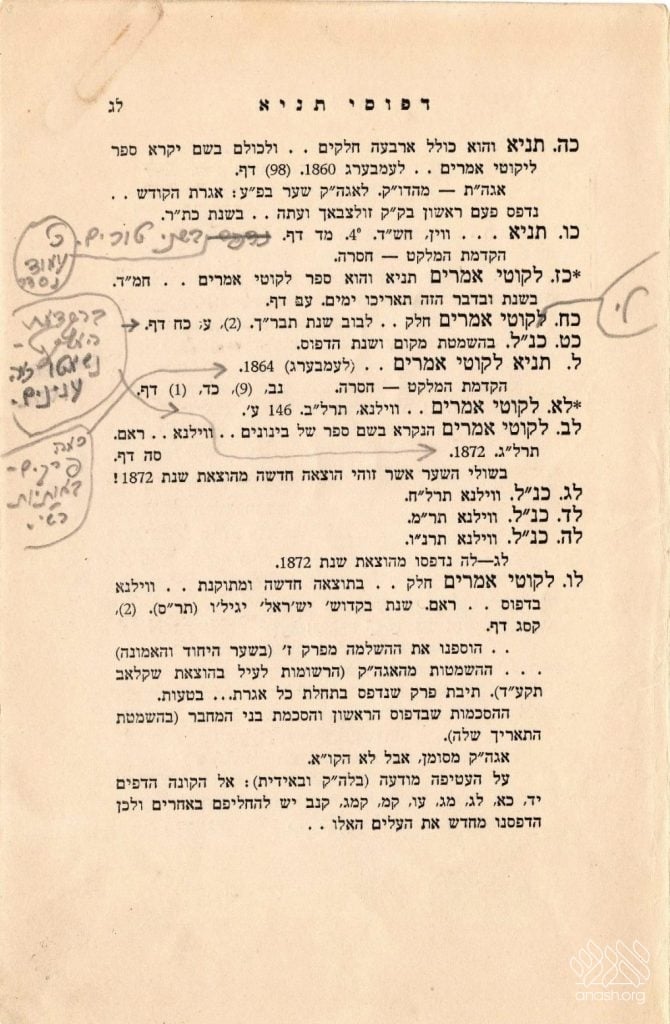 דפוסי תניא
לג
כה. תניא והוא כולל ארבעה חלקים . . ולכולם בשם יקרא ספר
ליקוטי אמרים . . לעמבערג 1860. (98) דף.
אגה״ת — מהדו״ק. לאגה״ק שער בפ״ע: אגרת הקודש . .
נדפס פעם ראשון בק״ק זולצבאך ועתה . . בשנת כת״ר.
כו. תניא . . . ווין, חש״ד. 4°. מד דף. בשני טורים.
הקדמת המלקט — חסרה.
*כז. לקוטי אמרים תניא והוא ספר לקוטי אמרים . . חמ״ד.
בשנת ובדבר הזה תאריכו ימים. עב דף.
כח. לקוטי אמרים חלק . . לבוב שנת תבר״ך. (2), ע, כח דף.
כט. כנ״ל. בהשמטת מקום ושנת הדפוס.
ל. תניא לקוטי אמרים . . (לעמבערג) 1864
הקדמת המלקט — חסרה. נב, (9), כד, (1) דף.
*לא. לקוטי אמרים . . ווילנא, תרל״ב. 146 ע׳.
לב. לקוטי אמרים הנקרא בשם ספר של בינונים . . ווילנא . . ראם.
תרל״ג. 1872. סה דף.
בשולי השער אשר זוהי הוצאה חדשה מהוצאת שנת 1872!
לג. כנ״ל. ווילנא תרל״ח.
לד. כנ״ל. ווילנא תר״מ.
לה. כנ״ל. ווילנא תרנ״ו.
לג—לה נדפסו מהוצאת שנת 1872.
לו. לקוטי אמרים חלק . . בתוצאה חדשה ומתוקנת . . ווילנא
בדפוס . . ראם. שנת בקדוש׳ יש׳ראל׳ יגיל׳ו (תר״ס). (2),
קסג דף.
. . הוספנו את ההשלמה מפרק ז׳ (בשער היחוד והאמונה)
. . . ההשמטות מהאגה״ק (הרשומות לעיל בהוצאת שקלאב
תקע״ד). תיבת פרק שנדפס בתחלת כל אגרת... בטעות.
ההסכמות שבדפוס הראשון והסכמת בני המחבר (בהשמטת
התאריך שלה).
אגה״ק מסומן, אבל לא הקו״א.
על העטיפה מודעה (בלה״ק ובאידית): אל הקונה הדפים
יד, כא, לג, מג, עו, קמ, קמג, קנב יש להחליפם באחרים ולכן
הדפסנו מחדש את העלים האלו . .
עמוד
ענינים.
כמה
פרקים -
באותיות
רש״י.
anash.org